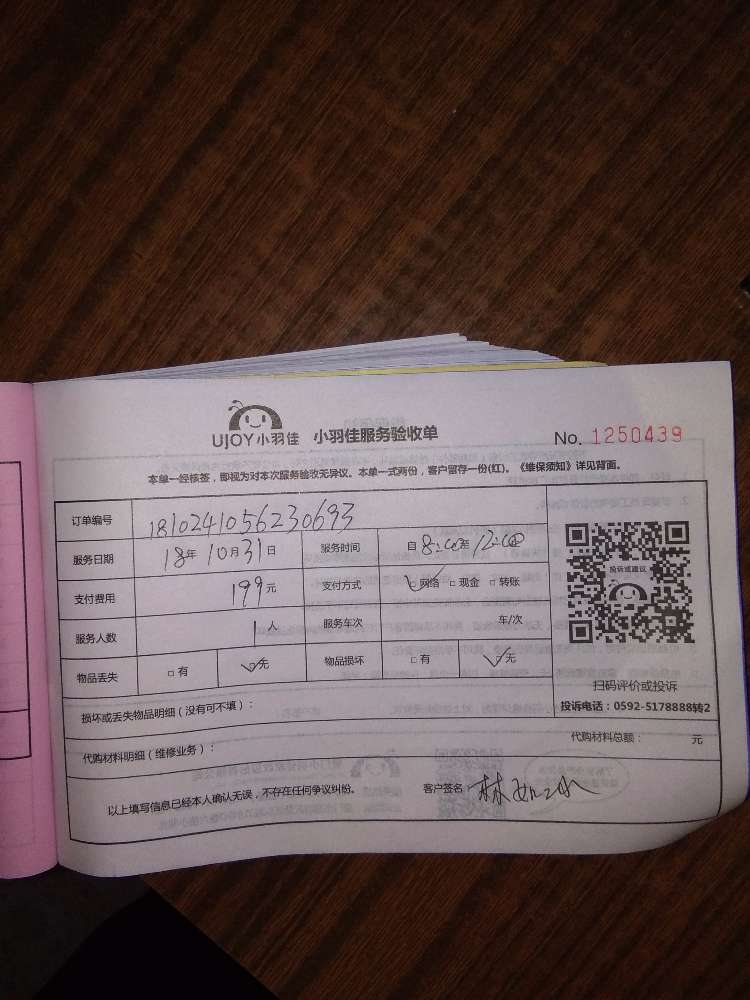 UJOY小羽佳 小羽佳服务验收单 No. 1250439
本单一经核签，即视为对本次服务验收无异议。本单一式两份，客户留存一份(红)。《维保须知》详见背面。
订单编号 1810241056230693
服务日期 18年10月31日 服务时间 自8:00至12:00
支付费用 199元 支付方式 ☑网络 □现金 □转账
服务人数 1人 服务车次 车/次
物品丢失 □有 ☑无 物品损坏 □有 ☑无
投诉或建议
扫码评价或投诉
投诉电话：0592-5178888转2
损坏或丢失物品明细（没有可不填）：
代购材料明细（维修业务）： 代购材料总额： 元
以上填写信息已经本人确认无误，不存在任何争议纠纷。 客户签名 林如